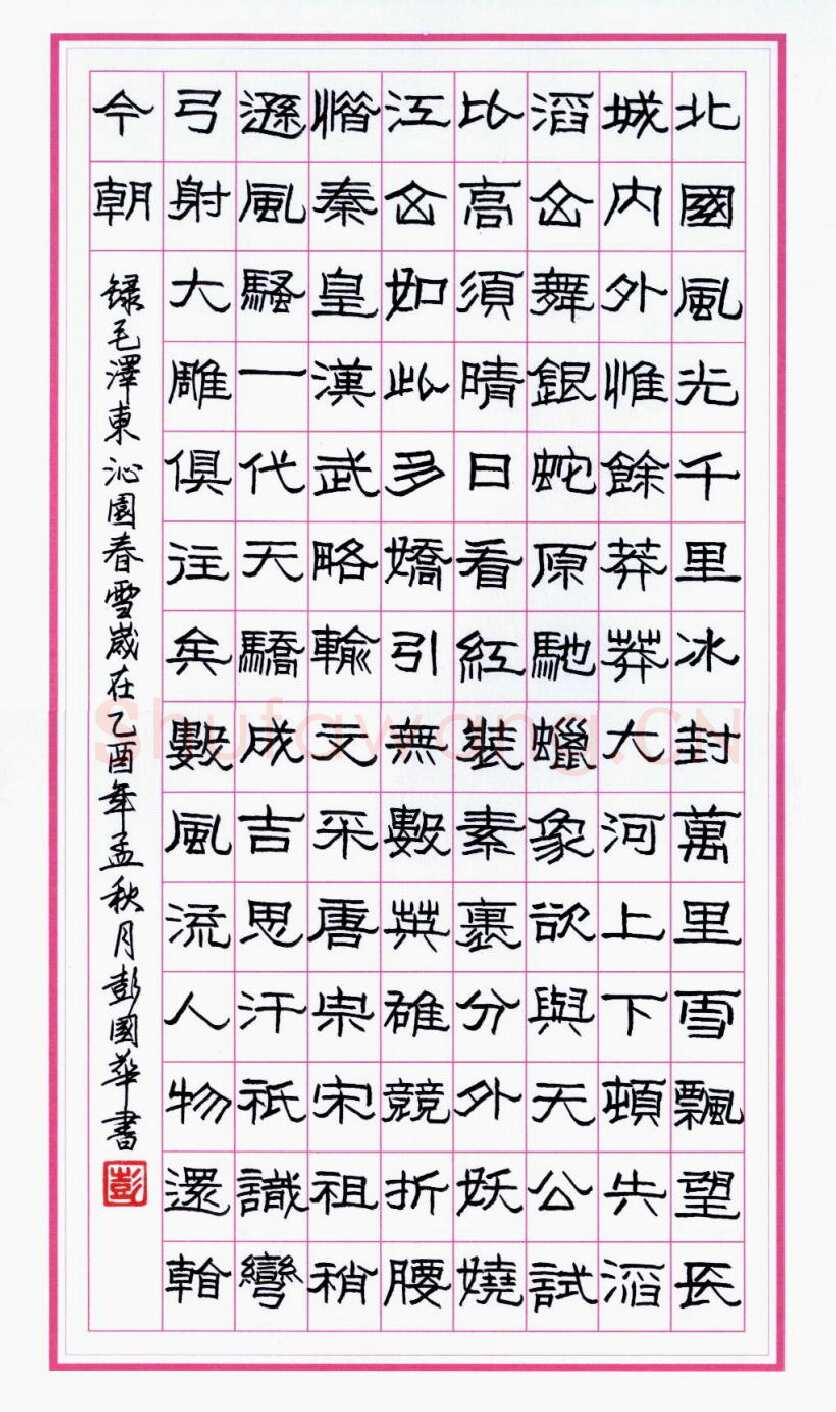 北國風光千里冰封萬里雪飄望長
城內外惟餘莽莽大河上下頓失滔
滔山舞銀蛇原馳蠟象欲與天公試
比高須晴日看紅裝素裹分外妖嬈
江山如此多嬌引無數英雄競折腰
惜秦皇漢武略輸文采唐宗宋祖稍
遜風騷一代天驕成吉思汗祇識彎
弓射大雕俱往矣數風流人物還看
今朝
録毛澤東沁園春雪歲在乙酉年孟秋月彭國華書
彭
Shufawang.CN